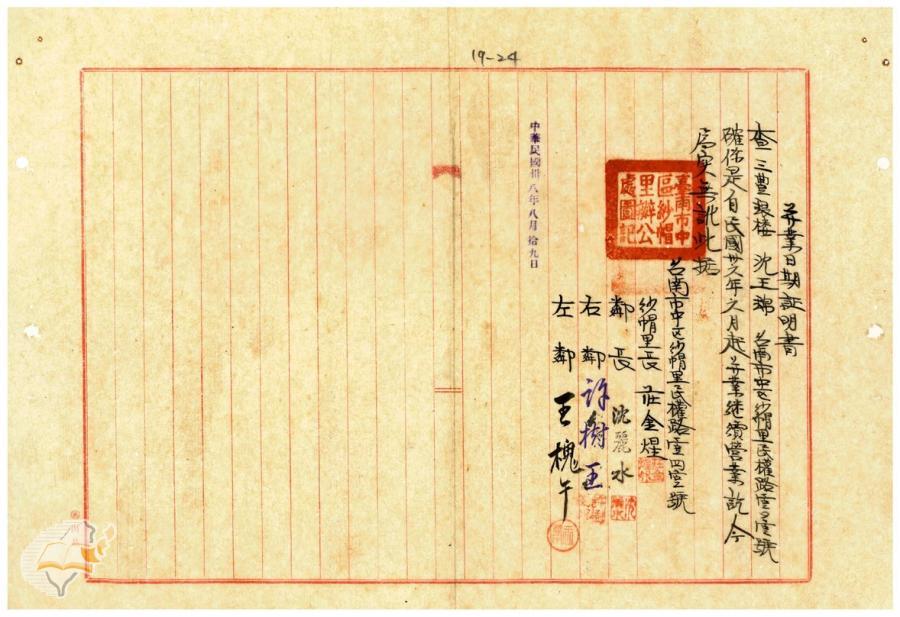 19-24
開業日期証明書
查三豊銀楼 沈王 台南市中区紗帽里民權路 号
確係是自民國卅六年六月起開業継續營業訖今
為実無訛此据
臺南市中
區紗帽
里辦公
處圖記
台南市中区紗帽里民權路 號
紗帽里長 莊金煋
鄰長 沈麗水
右鄰 許樹王
左鄰 王槐午
中華民國卅八年八月拾九日